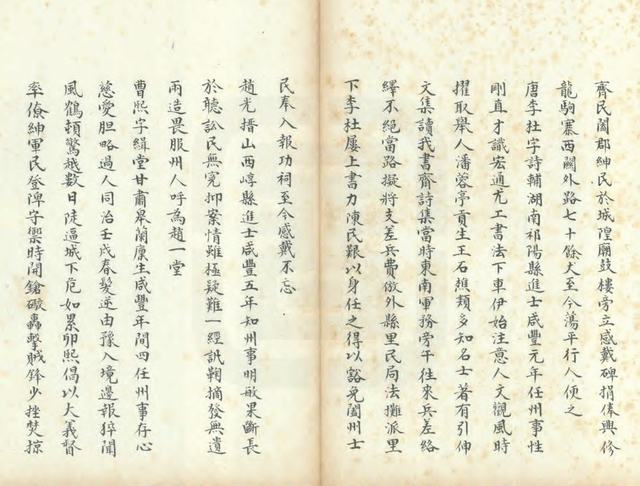 齊民闔郡紳民於城隍廟鼓樓旁立感戴碑捐俸興修
龍駒寨西關外路七十餘丈至今蕩平行人便之
唐李杜字詩輔湖南祁陽縣進士咸豐元年任州事性
剛直才識宏通尤工書法下車伊始注意人文觀風時
擢取舉人潘蓉亭貢生王石樵類多知名士著有引伸
文集讀我書齋詩集當時東南軍務旁午往來兵差絡
繹不絕當路擬將支差兵費倣外縣里民局法攤派里
下李杜屢上書力陳民艱以身任之得以豁免闔州士
民奉入報功祠至今感戴不忘
趙光搢山西崞縣進士咸豐五年知州事明敏果斷長
於聽訟民無冤抑案情雖極疑難一經訊鞫摘發無遺
兩造畏服州人呼為趙一堂
曹熙字緝堂甘肅皋蘭廩生咸豐年間四任州事存心
慈愛胆略過人同治壬戌春髮逆由豫入境邊報猝聞
風鶴頻驚越數日陡逼城下危如累卵熙倡以大義督
率僚紳軍民登陴守禦時開鎗礮轟擊賊鋒少挫焚掠